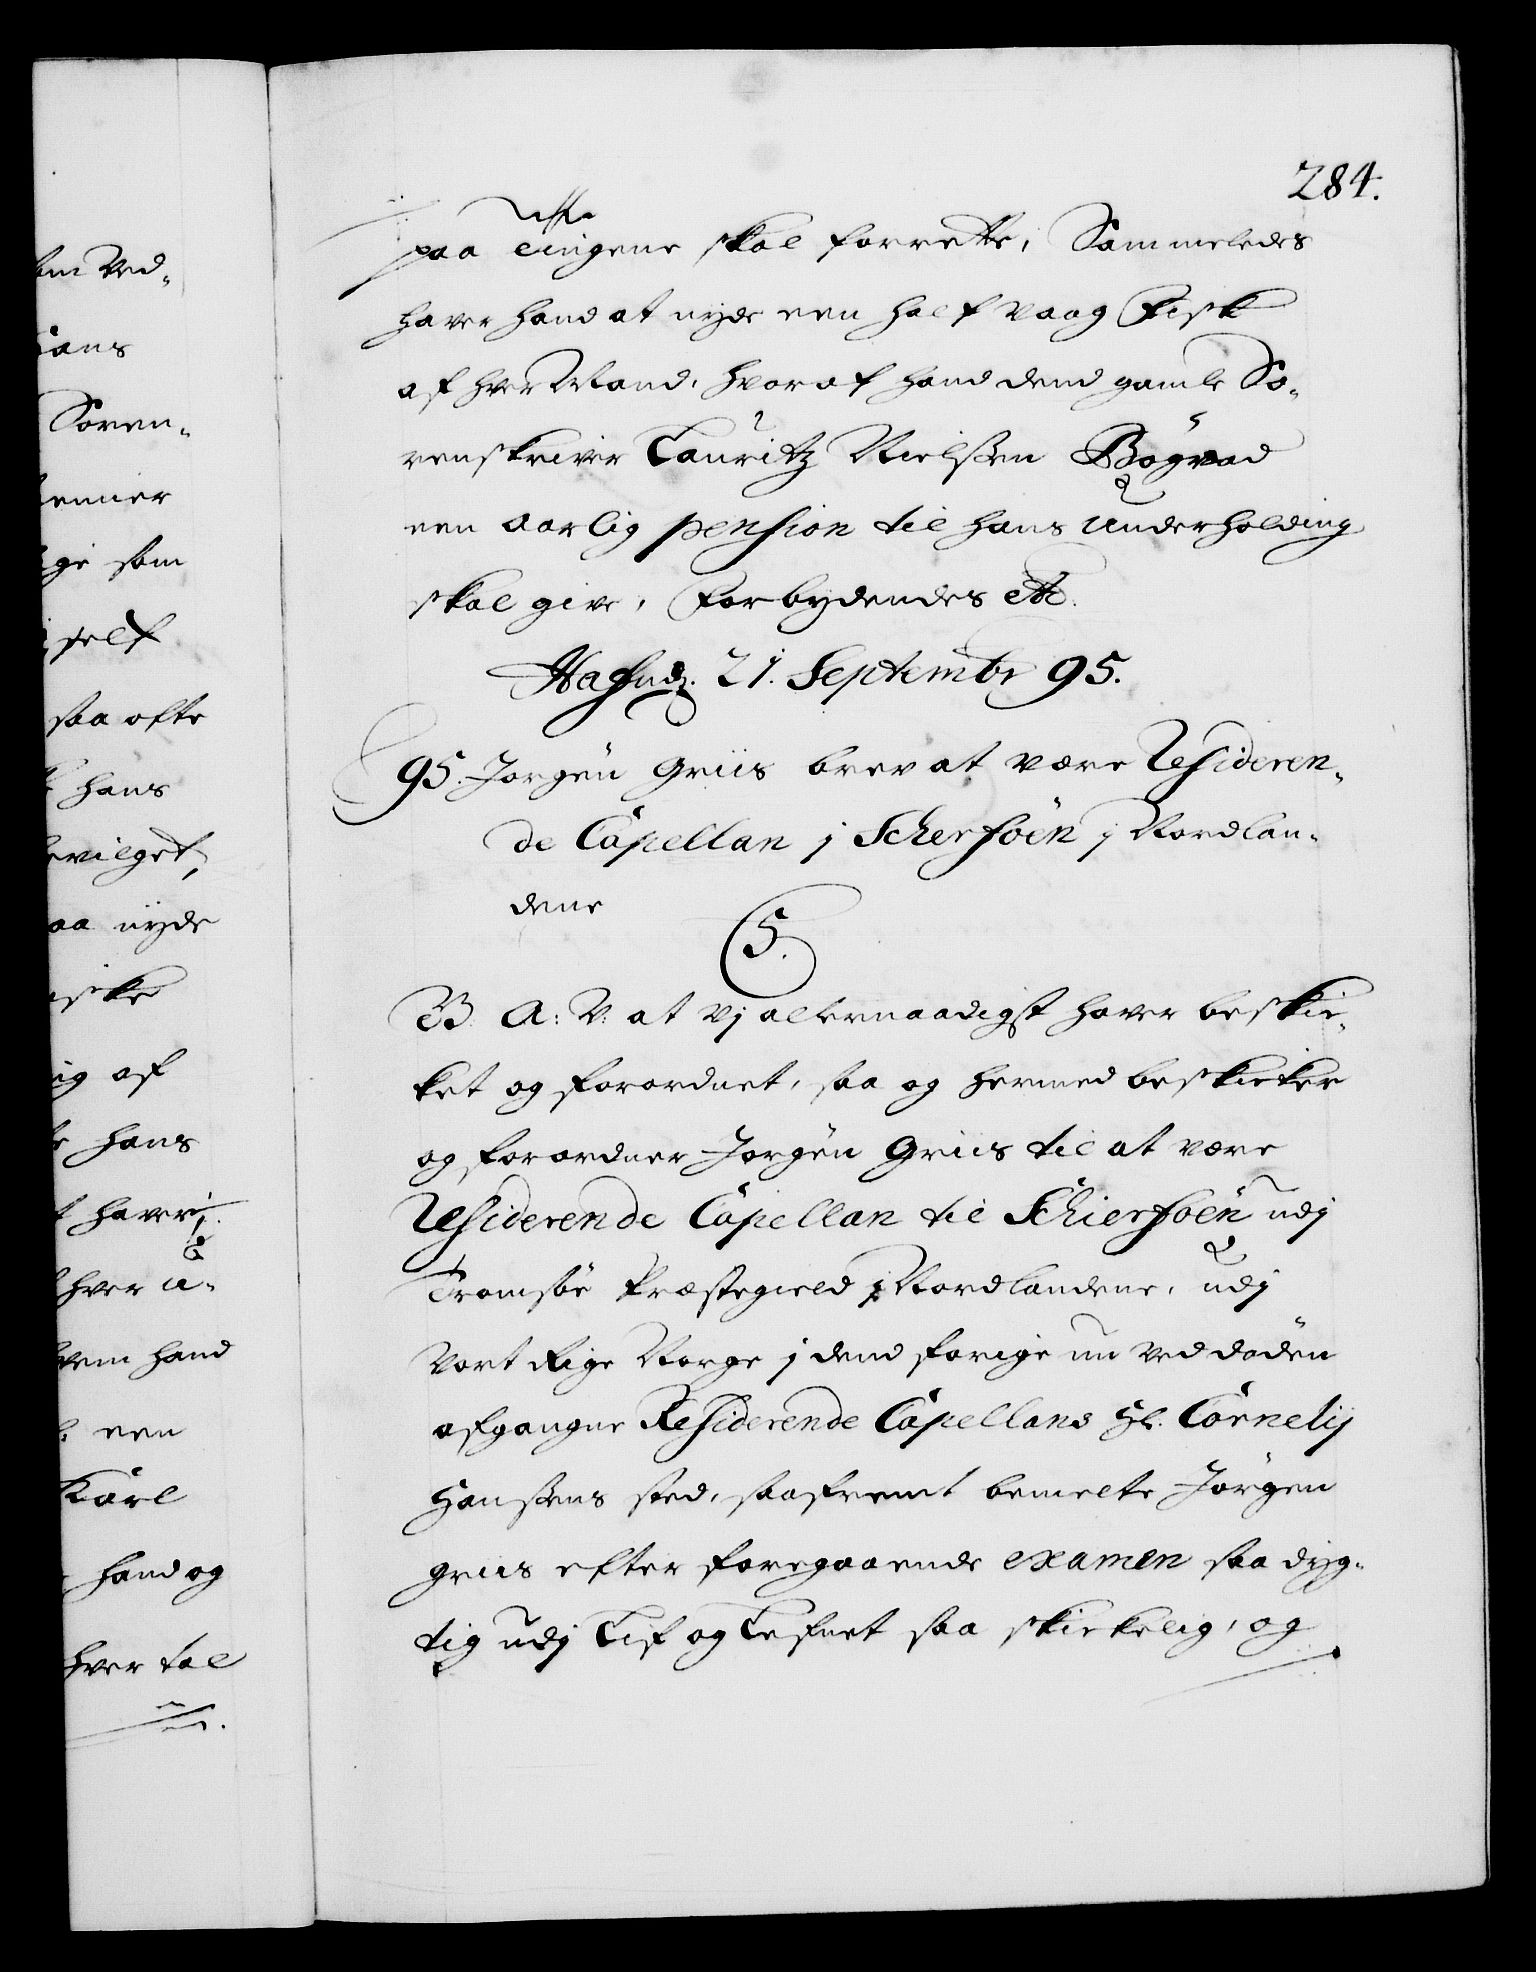 284.
paa Tingene skal forrette, Sammeledes
haver hand at nyde een half Vaag Fisk
af hver Mand, hvoraf hand dend gamle So-
renskriver Lauritz Nielssen Bögvad
een aarlig pension til hans Underholding
skal give, Forbydendes etc.
Hafniæ. 21. Septembr 95.
95. Jorgen Griis brev at være Resideren-
de Capellan j Scherföen j Nordlan-
dene
C 5.
G. A: V: at Vj allernaadigst haver beskic-
ket og forordnet, saa og hermed beskicker
og forordner Jorgen Griis til at være
Residerende Capellan til Schierföen udj
Tromsöe Præstegield j Nordlandene, udj
Vort Rige Norge j dend forige nu ved döden
afgangne Residerende Capellans Hr. Cornelij
Hanssens sted, saafremt bemelte Jörgen
Griis efter foregaaende examen saa dyg-
tig udj Lif og Lefnet saa skickelig, og
om Ved-
hans
Soren-
kenner
ge som
self
saa ofte
hans
bevilget,
aa nyde
iske
ig af
hans
haver
hver U-
hvem hand
een
Karl
hand og
hver tal